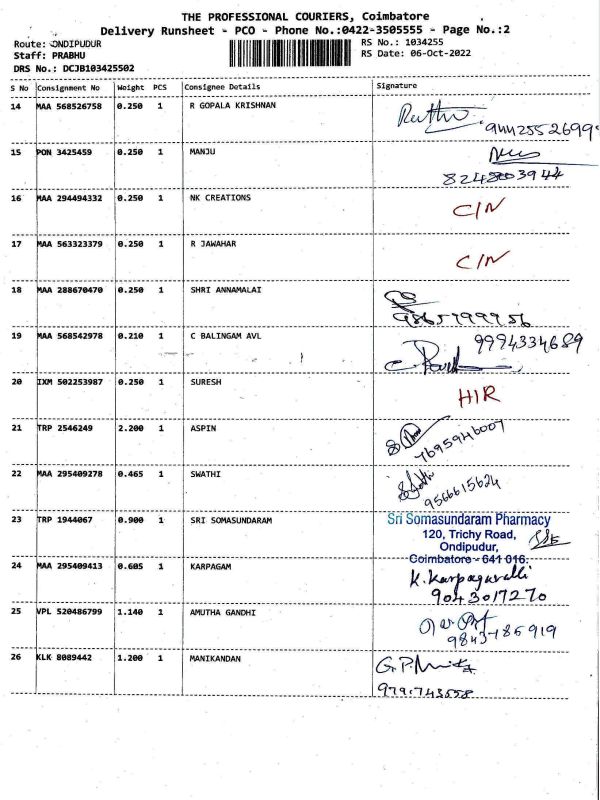 THE PROFESSIONAL COURIERS, Coimbatore
Delivery Runsheet - PCO - Phone No.:0422-3505555 - Page No.:2
Route: ONDIPUDUR RS No.: 1034255
Staff: PRABHU RS Date: 06-Oct-2022
DRS No.: DCJB103425502
S No Consignment No Weight PCS Consignee Details Signature
14 MAA 568526758 0.250 1 R GOPALA KRISHNAN
9442552699
15 PON 3425459 0.250 1 MANJU
8248803944
16 MAA 294494332 0.250 1 NK CREATIONS C/N
17 MAA 563323379 0.250 1 R JAWAHAR C/N
18 MAA 288670470 0.250 1 SHRI ANNAMALAI
9865799956
19 MAA 568542978 0.210 1 C BALINGAM AVL 9994334689
20 IXM 502253987 0.250 1 SURESH HIR
21 TRP 2546249 2.200 1 ASPIN
7695946007
22 MAA 295409278 0.465 1 SWATHI
9566615624
23 TRP 1944067 0.900 1 SRI SOMASUNDARAM Sri Somasundaram Pharmacy
120, Trichy Road,
Ondipudur,
Coimbatore - 641 016.
24 MAA 295409413 0.605 1 KARPAGAM K. Karpagavalli
9043017270
25 VPL 520486799 1.140 1 AMUTHA GANDHI
9843186919
26 KLK 8089442 1.200 1 MANIKANDAN
9791743558